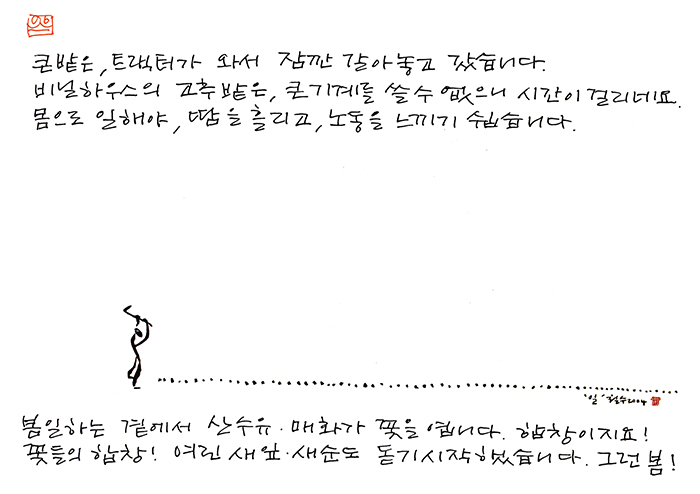 큰밭은, 트랙터가 와서 잠깐 갈아놓고 갔습니다.
비닐하우스의 고추밭은, 큰기계를 쓸 수 없으니 시간이 걸리네요.
몸으로 일해야, 땀을 흘리고, 노동을 느끼기 쉽습니다.
'일' 철수2014
봄일하는 곁에서 산수유·매화가 꽃을 엽니다. 합창이지요!
꽃들의 합창! 여린 새 잎·새순도 돋기 시작했습니다. 그런 봄!